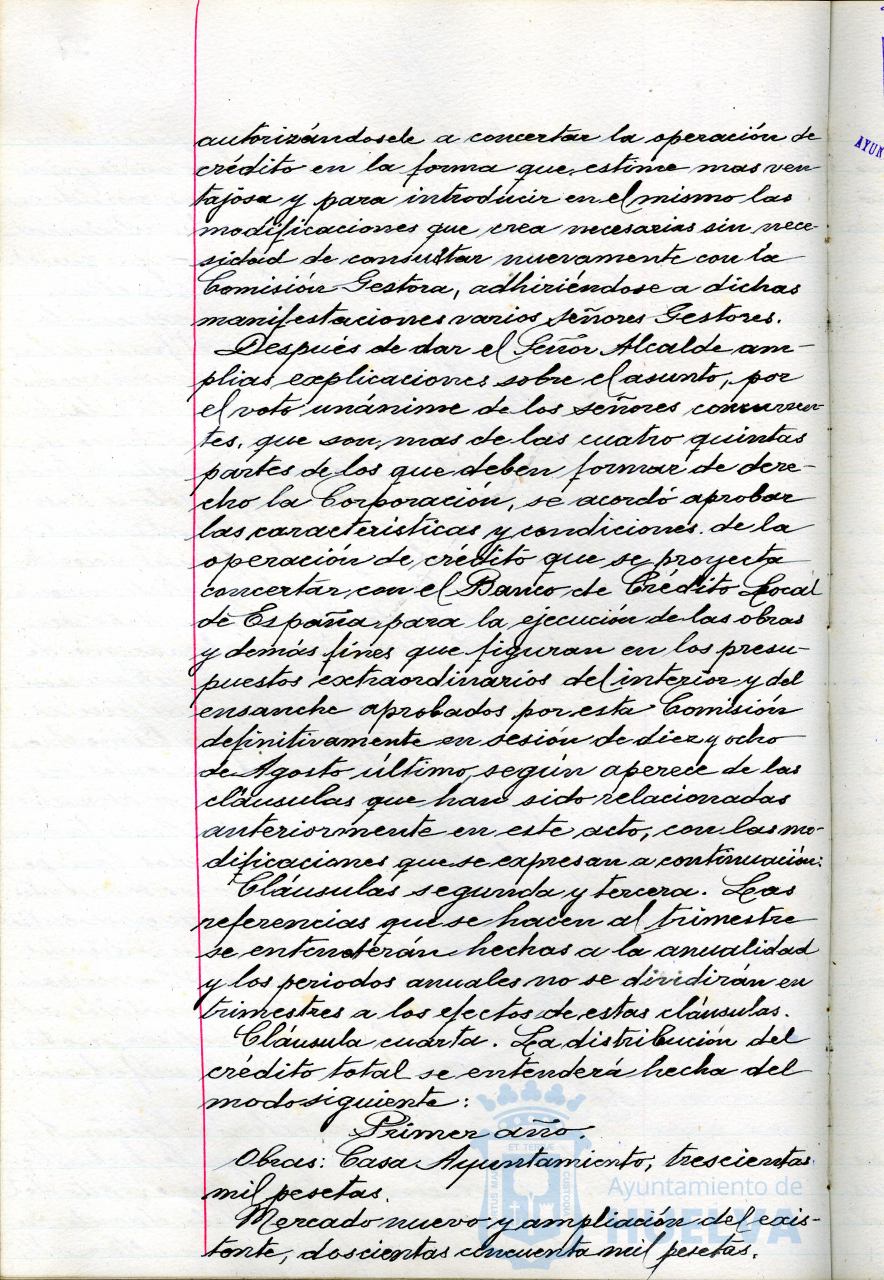 autorizándosele a concertar la operación de
crédito en la forma que estime mas ven
tajosa y para introducir en el mismo las
modificaciones que crea necesarias sin nece-
sidad de consultar nuevamente con la
Comisión Gestora, adhiriéndose a dichas
manifestaciones varios señores Gestores.
Después de dar el Señor Alcalde am-
plias explicaciones sobre el asunto, por
el voto unánime de los señores concurren-
tes, que son mas de las cuatro quintas
partes de los que deben formar de dere-
cho la Corporación, se acordó aprobar
las características y condiciones de la
operación de crédito que se proyecta
concertar con el Banco de Crédito Local
de España para la ejecución de las obras
y demás fines que figuran en los presu-
puestos extraordinarios del interior y del
ensanche aprobados por esta Comisión
definitivamente en sesión de diez y ocho
de Agosto último, según aperece de las
cláusulas que han sido relacionadas
anteriormente en este acto, con las mo-
dificaciones que se expresan a continuación:
Cláusulas segunda y tercera. Las
referencias que se hacen al trimestre
se entenderán hechas a la anualidad
y los periodos anuales no se dividirán en
trimestres a los efectos de estas cláusulas.
Cláusula cuarta. La distribución del
crédito total se entenderá hecha del
modo siguiente:
Primer año.
Obras: Casa Ayuntamiento, trescientas
mil pesetas.
Mercado nuevo y ampliación del exis-
tente, doscientas cincuenta mil pesetas.
AYUN
Ayuntamiento de
HUELVA